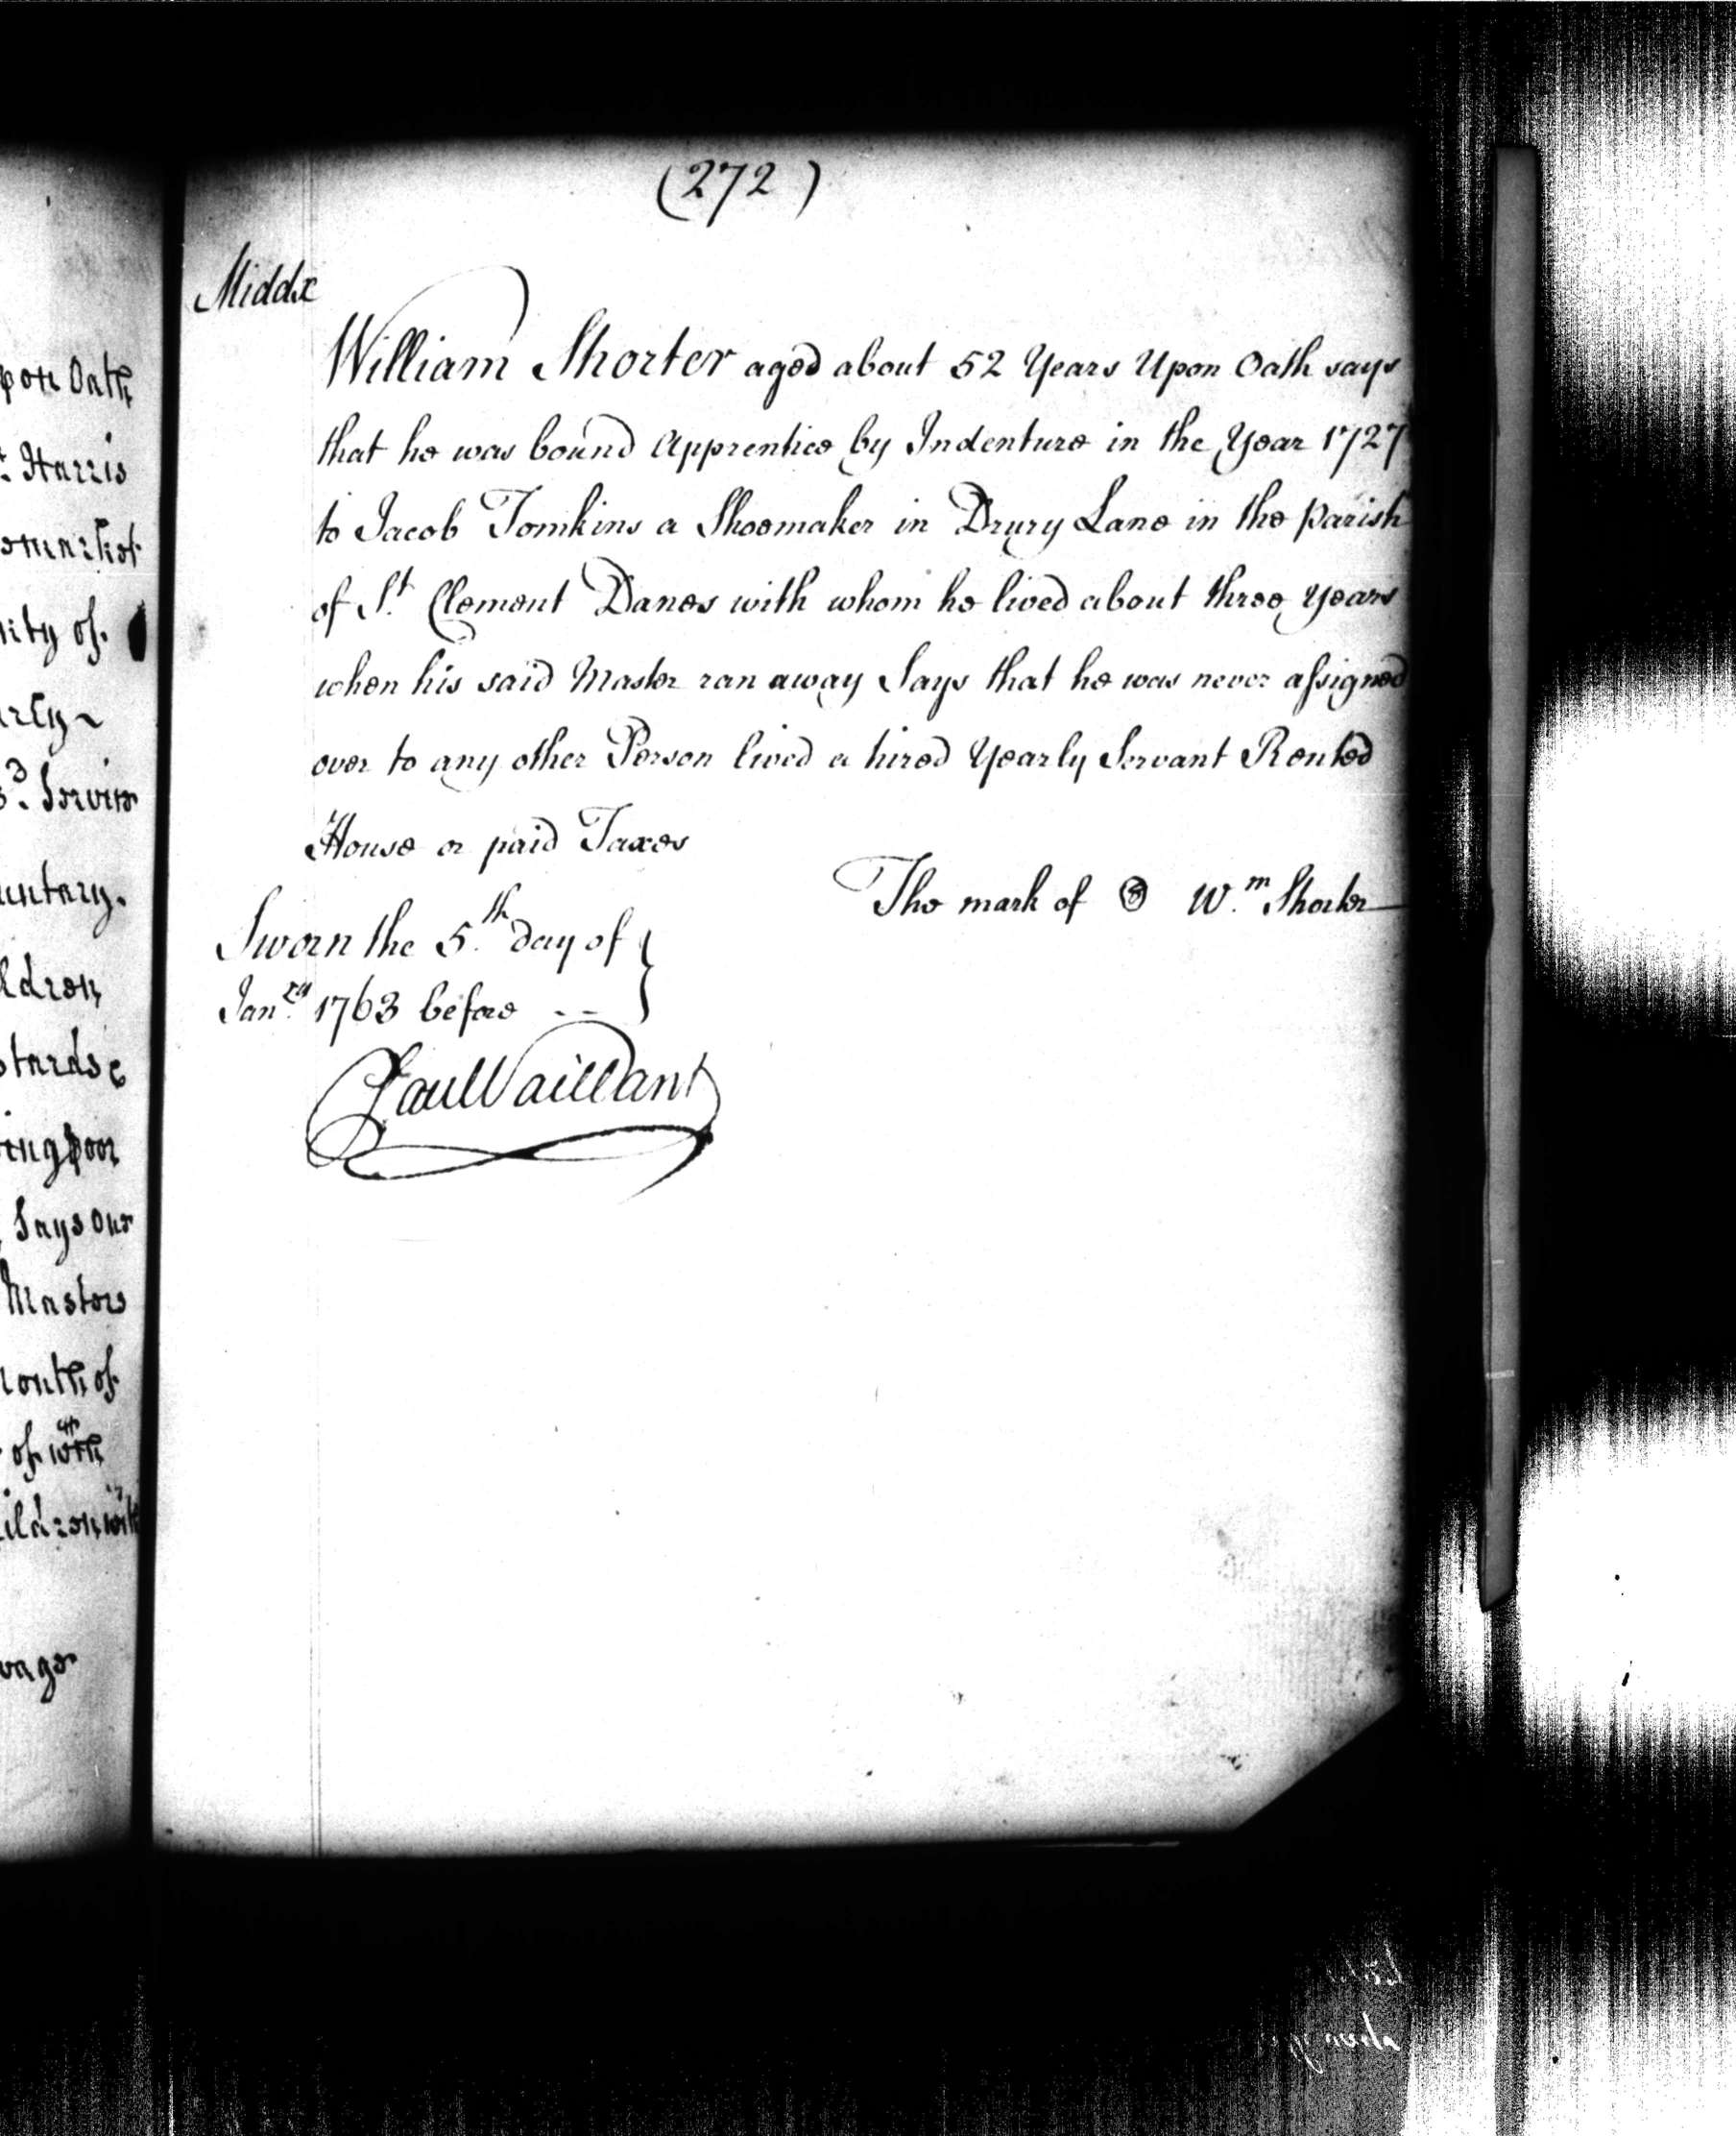 (272)
Middx
William Shorter aged about 52 Years Upon Oath says
that he was bound Apprentice by Indenture in the Year 1727
to Jacob Tomkins a Shoemaker in Drury Lane in the parish
of St. Clement Danes with whom he lived about three years
when his said Master ran away Says that he was never assigned
over to any other Person lived a hired Yearly Servant Rented
House or paid Taxes
The mark of W.m Shorter
Sworn the 5.th day of
Jan.ry 1763 before - -
Paul Vaillant
pon Oath
t. Harris
ity of
3d. Servire
untary.
ldren
stards &
ing poor
Says our
Masters
month of
of wth
ildren with